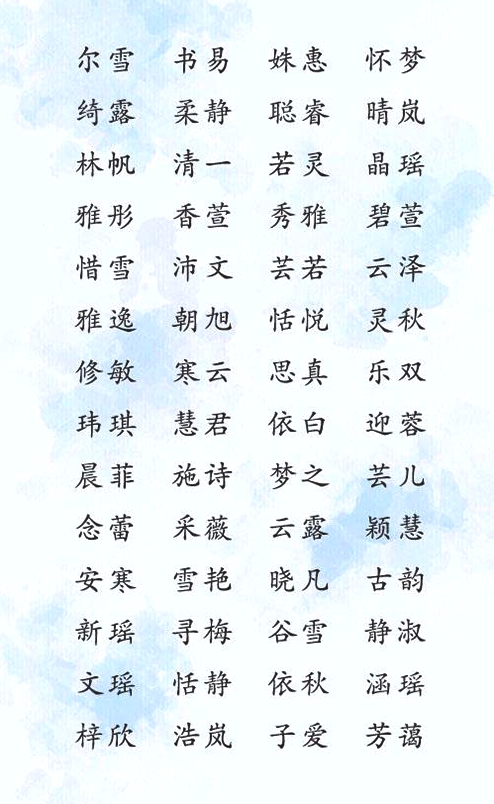 尔雪 书易 姝惠 怀梦
绮露 柔静 聪睿 晴岚
林帆 清一 若灵 晶瑶
雅彤 香萱 秀雅 碧萱
惜雪 沛文 芸若 云泽
雅逸 朝旭 恬悦 灵秋
修敏 寒云 思真 乐双
玮琪 慧君 依白 迎蓉
晨菲 施诗 梦之 芸儿
念蕾 采薇 云露 颖慧
安寒 雪艳 晓凡 古韵
新瑶 寻梅 谷雪 静淑
文瑶 恬静 依秋 涵瑶
梓欣 浩岚 子爱 芳蔼